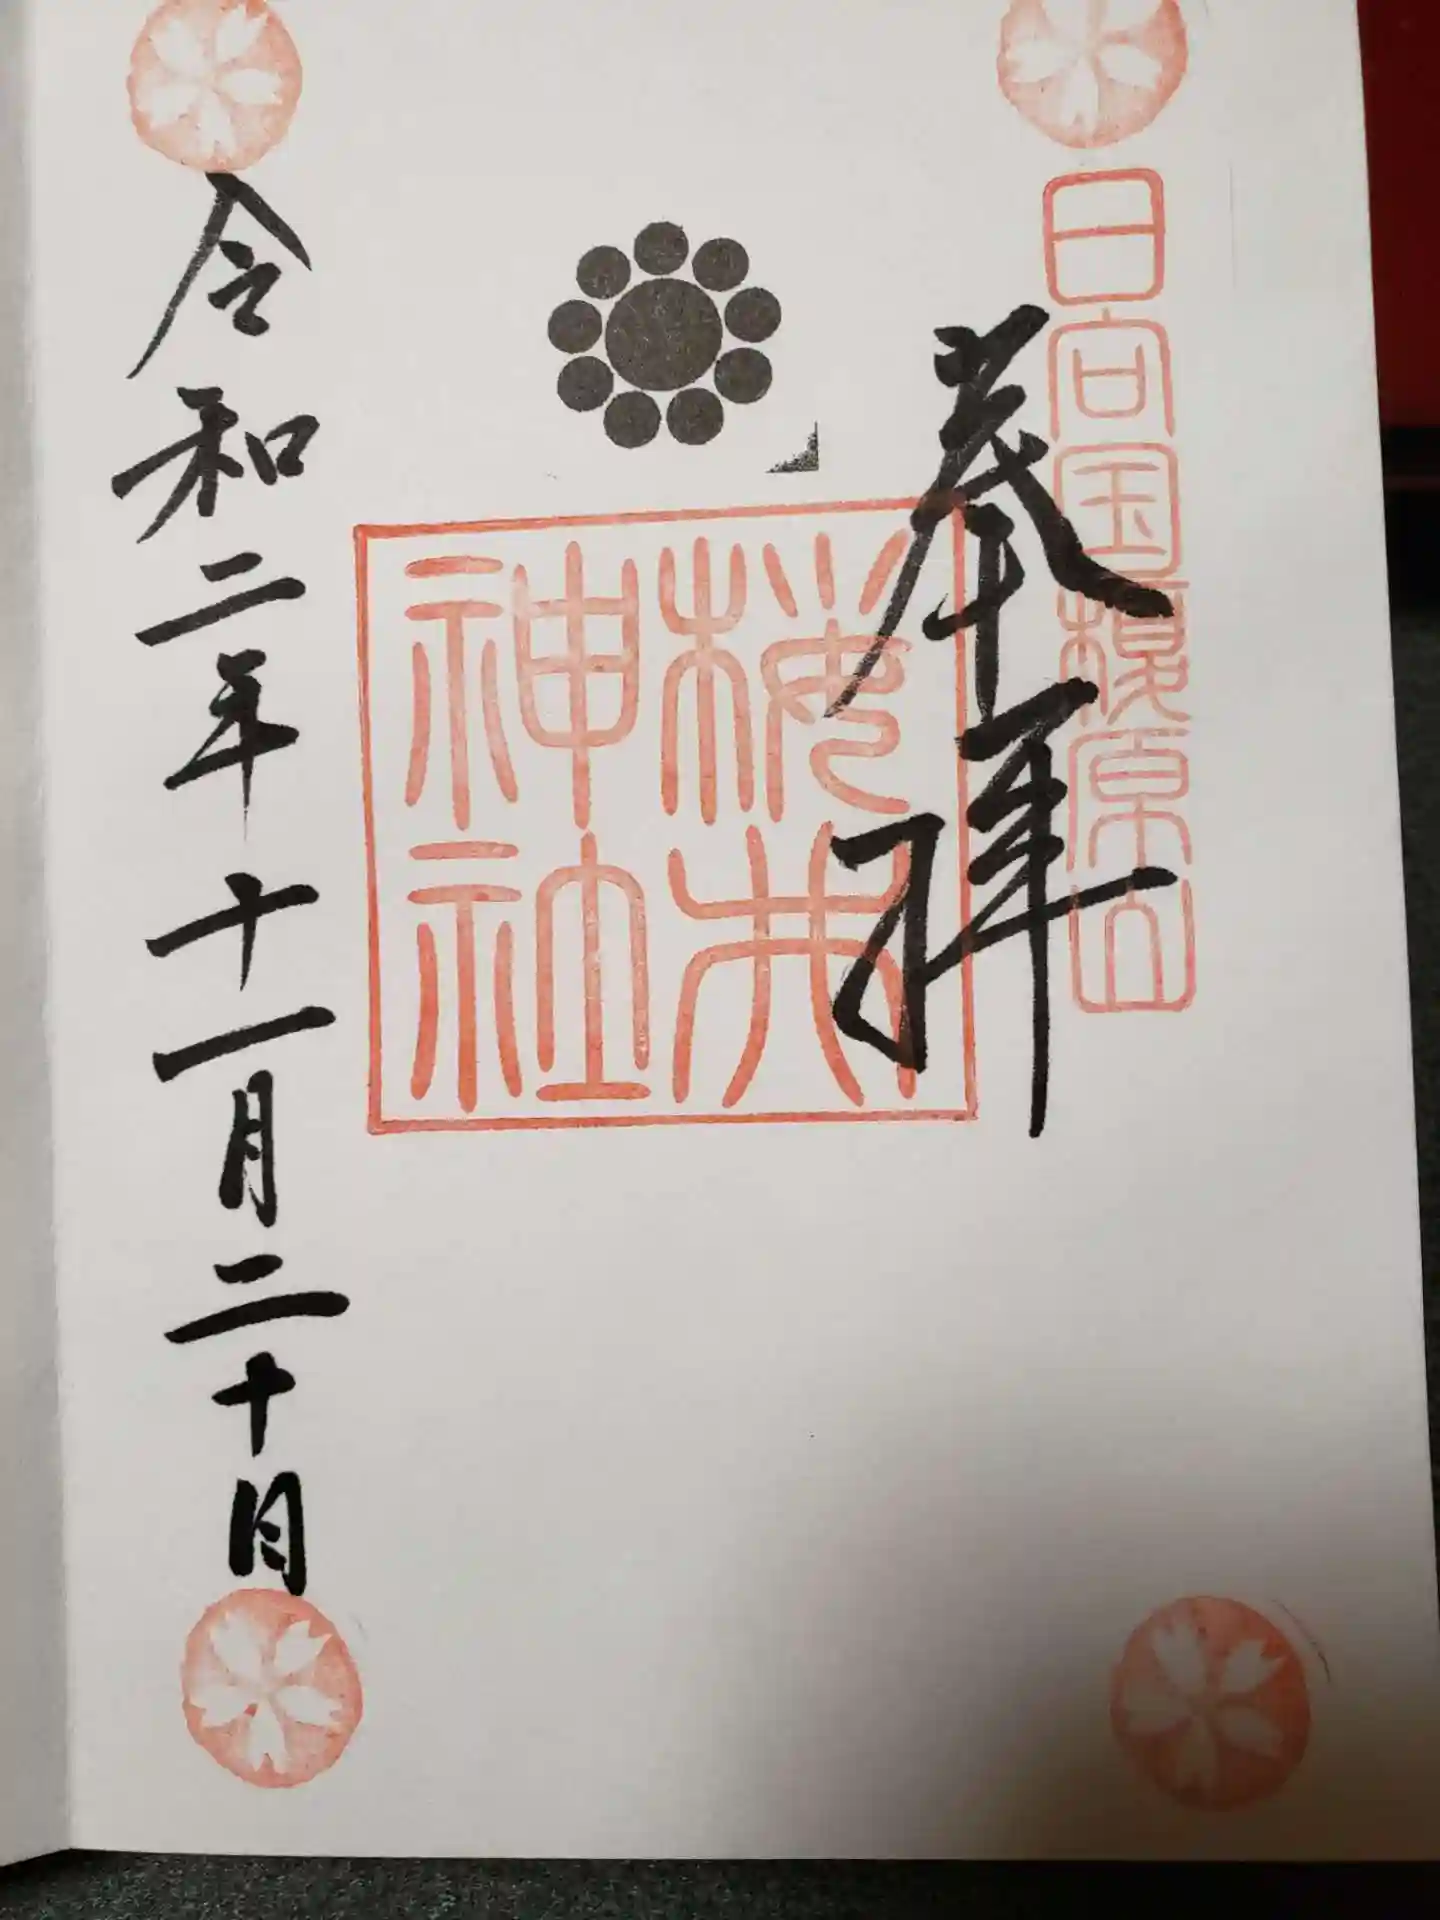 日向国榎原山
奉拝
桜井
神社
令和二年十一月二十日